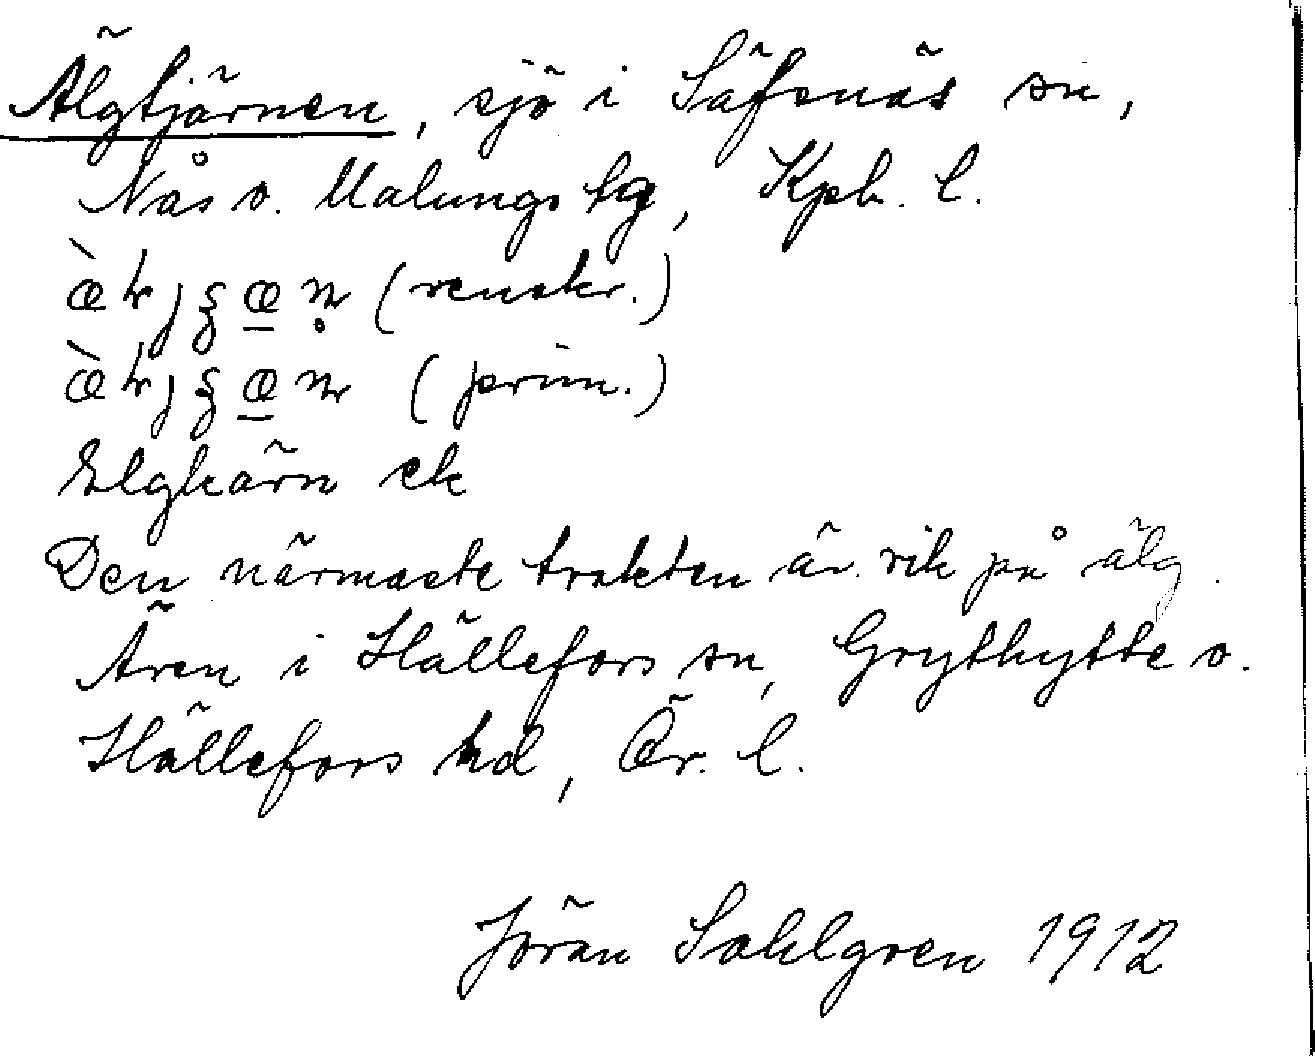 Älgtjärnen, sjö i Säfsnäs sn,
Nås o. Malungs tg, Kpb. l.
(renskr.)
(prim.)
Elgkärn ek
Den närmaste trakten är rik på älg.
Ären i Hällefors sn, Grythytte o.
Hällefors hd, Ör. l.
Jöran Sahlgren 1912